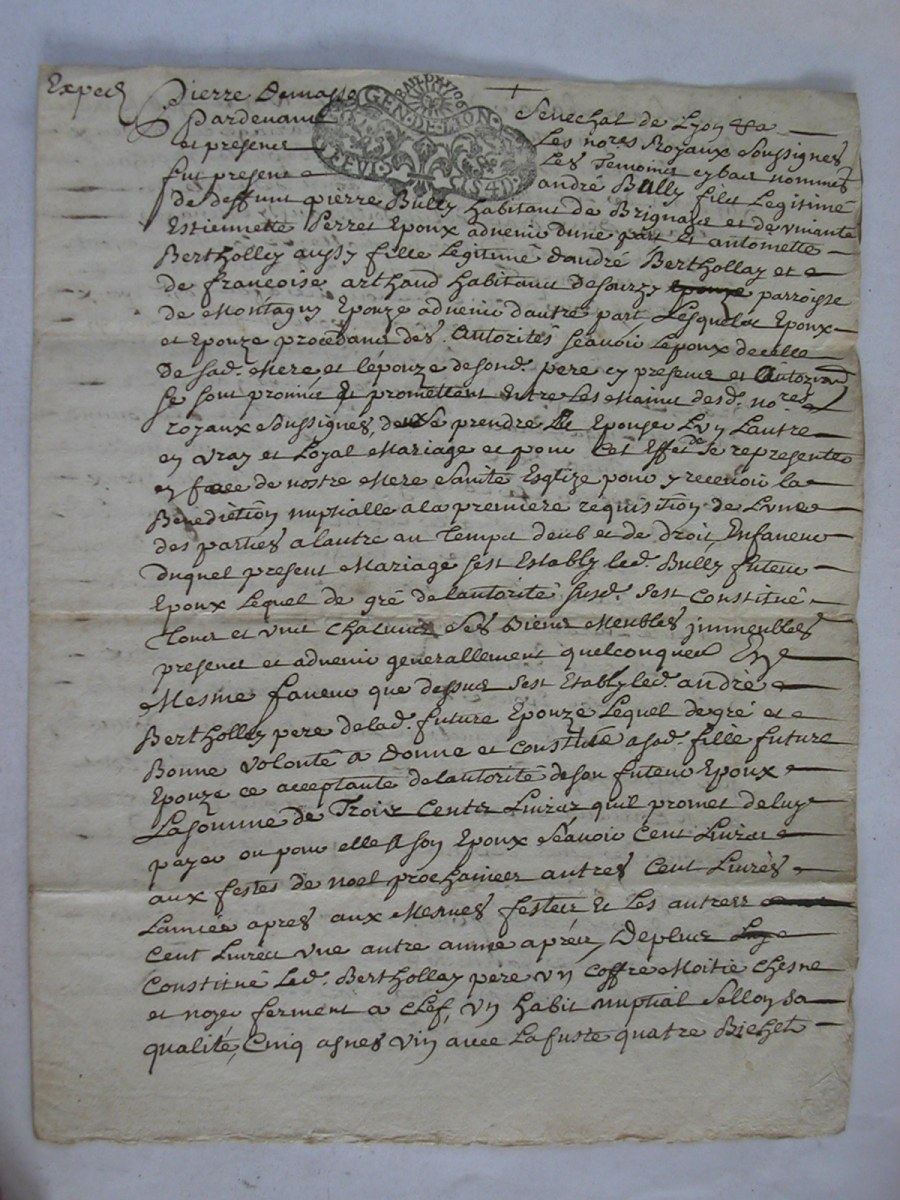 Exped
Pierre Demasso Senechal de Lyon &a
Pardevant Les nores Royaux soussignes
et presence Les Temoins cybas nommes
GEN·DE·LION
fut present andré Bully fils Legitime
de deffunt pierre Bully habitant de Brignais et de vivante
Estiennette Perret Epoux advenir dune part Et antoinette
Berthollay aussy fille Legitime dandré Berthollay et
de francoise arthaud habitant de sourzy parroisse
de Montagny Epouze advenir dautre part Lesquels Epoux
et Epouze procedant des autorités scavoir Lepoux de celle
de sad. Mere et lépouze de sond. pere cy present et autorizant
se sont promis et promettent Entre Les Mains desd. nores
royaux soussignes, de se prendre et Epouser Lun Lautre
en vray et Loyal Mariage et pour cet Effet de se representer
en face de nostre Mere Sainte Esglize pour y recevoir la
Benediction nuptialle a la premiere requisition de Lune
des parties a lautre au Temps deub et de droit, En faveur
duquel present Mariage sest Estably led. Bully futeur
Epoux Lequel de gré de lautorité susd. sest constitué
Tous et uns chacuns ses Biens Meubles jmmeubles
present et advenir generallement quelconques
Mesme faveur que dessus sest Estably led. andré
Berthollay pere de lad. future Epouze Lequel de gré et
Bonne volonté a Donné et constitué a sad. fille future
Epouze ce acceptante de lautorité de son futeur Epoux
La somme de Trois Cents Livres quil promet de luy
payer ou pour elle a son Epoux scavoir Cent Livres
aux festes de noel prochaines autres Cent Livres
Lannée apres aux Mesmes festes Et Les autres
Cent Livres une autre année apres, De plus
Constitue Led. Berthollay pere un coffre Moitie chesne
et noyer ferment a clef, un habit nuptial sellon sa
qualité, Cinq asnes vin avec La fuste quatre Bichets